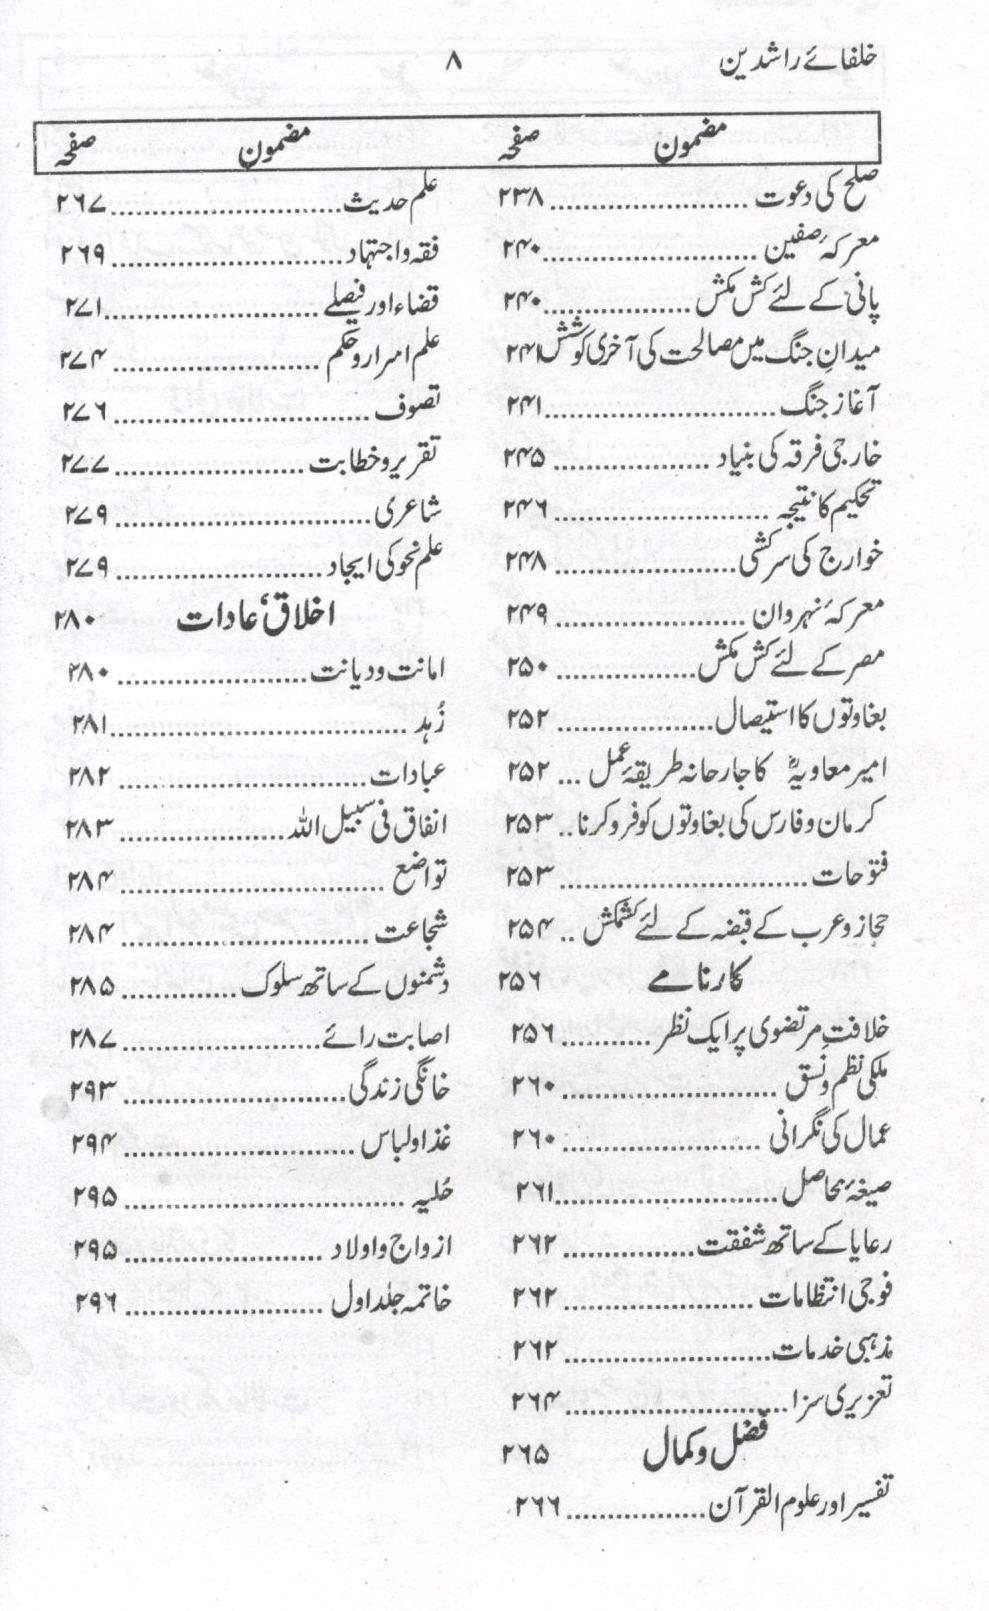 خلفائے راشدین ۸
مضمون صفحہ
صلح کی دعوت ........................ ۲۳۸
معرکۂ صفین ........................ ۲۴۰
پانی کے لئے کش مکش ................. ۲۴۰
میدانِ جنگ میں مصالحت کی آخری کوشش ۲۴۱
آغاز جنگ ........................ ۲۴۱
خارجی فرقہ کی بنیاد ................. ۲۴۵
تحکیم کا نتیجہ ........................ ۲۴۶
خوارج کی سرکشی ................. ۲۴۸
معرکۂ نہروان ................. ۲۴۹
مصر کے لئے کش مکش ................. ۲۵۰
بغاوتوں کا استیصال ................. ۲۵۲
امیر معاویہؓ کا جارحانہ طریقۂ عمل ... ۲۵۲
کرمان و فارس کی بغاوتوں کو فرو کرنا .. ۲۵۳
فتوحات ........................ ۲۵۳
حجاز و عرب کے قبضہ کے لئے کشمکش .. ۲۵۴
کارنامے ۲۵۶
خلافتِ مرتضوی پر ایک نظر ........... ۲۵۶
ملکی نظم و نسق ................. ۲۶۰
عمال کی نگرانی ................. ۲۶۰
صیغۂ محاصل ................. ۲۶۱
رعایا کے ساتھ شفقت ................. ۲۶۲
فوجی انتظامات ................. ۲۶۲
مذہبی خدمات ................. ۲۶۲
تعزیری سزا ................. ۲۶۴
فضل و کمال ۲۶۵
تفسیر اور علوم القرآن ................. ۲۶۶
مضمون صفحہ
علم حدیث ................. ۲۶۷
فقہ و اجتہاد ................. ۲۶۹
قضاء اور فیصلے ................. ۲۷۱
علم اسرار و حکم ................. ۲۷۴
تصوف ................. ۲۷۶
تقریر و خطابت ................. ۲۷۷
شاعری ................. ۲۷۹
علم نحو کی ایجاد ................. ۲۷۹
اخلاق، عادات ۲۸۰
امانت و دیانت ................. ۲۸۰
زُہد ................. ۲۸۱
عبادات ................. ۲۸۲
انفاق فی سبیل اللہ ................. ۲۸۳
تواضع ................. ۲۸۴
شجاعت ................. ۲۸۴
دشمنوں کے ساتھ سلوک ................. ۲۸۵
اصابت رائے ................. ۲۸۷
خانگی زندگی ................. ۲۹۳
غذا و لباس ................. ۲۹۴
حُلیہ ................. ۲۹۵
ازواج و اولاد ................. ۲۹۵
خاتمہ جلد اول ................. ۲۹۶